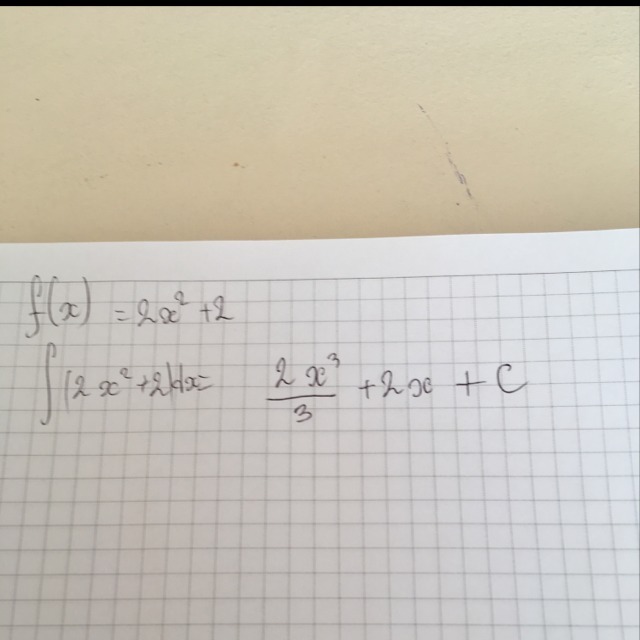 f(x) = 2x² + 2
∫(2x² + 2)dx = 2x³/3 + 2x + C